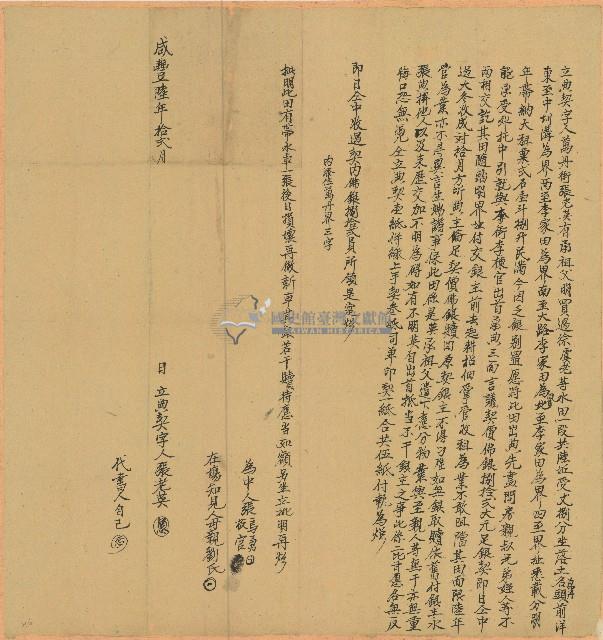 立典契字人萬丹街張老英有承祖父明買過徐虔老等水田一段共陸坵受丈捌分坐落土名頭前洋
東至中圳溝為界西至李家田為界南至大路李家田為界北至李家田為界四至界址悉載分明
年帶納大租粟弍石壹斗捌升民滿今因乏銀別置愿將此田出典先盡問房親叔兄弟姪人等不
能承受外托中引就與本街李棟官出首承典三面言議契價佛銀捌拾弍大元足銀契即日仝中
兩相交訖其田隨踏明界址付交銀主前去起耕招佃掌管收租為業不敢阻當其田面限陸年
送大冬收成对拾月方听典主備足契價佛銀贖回原契銀主不得刁難如無銀取贖依舊付銀主永
管為業亦不異言生端滋事保此田係是英承祖父遺下應分物業與至親人等無干亦無重
張典掛他人以及來歷交加不明為碍如有不明英自出首抵当不干銀主之事此係二比甘愿各無反
悔口恐無憑仝立典契壹紙併繳上手契叁紙司单印契一紙合共伍紙付執為炤
即日仝中收過契內佛銀捌拾弍員所領是實炤
內添註萬丹界三字
批明此田有帶水車一張後日損壞再做新車其銀若干贖時應当如額另坐立批明再炤
為中人張烏勇官
在場知見人母親劉氏
咸豐陸年拾弍月 日立典契字人張老英
代書人自己
國史館臺灣文獻館
TAIWAN HISTORICA